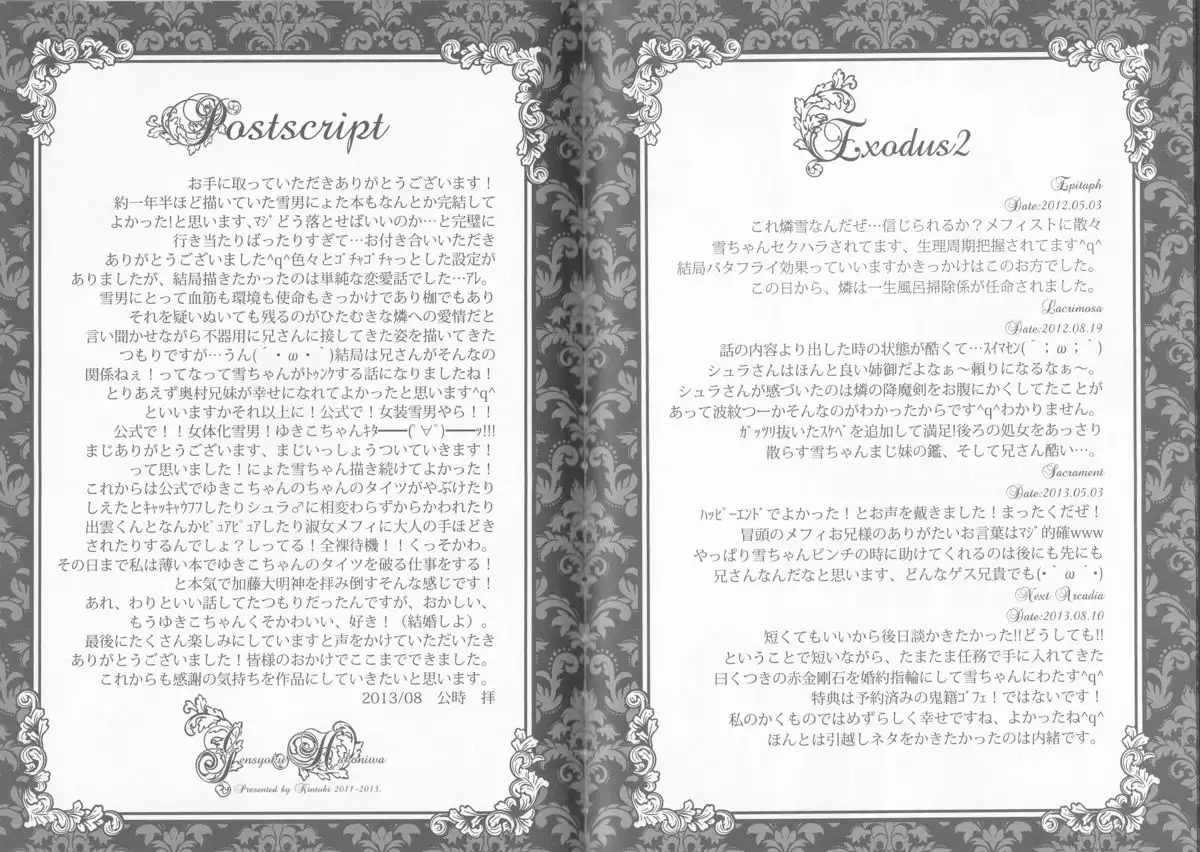 Postscript
お手に取っていただきありがとうございます！
約一年半ほど描いていた雪男にょた本もなんとか完結して
よかった!と思います､ﾏｼﾞどう落とせばいいのか…と完璧に
行き当たりばったりすぎて…お付き合いいただき
ありがとうございました^q^色々とｺﾞﾁｬｺﾞﾁｬっとした設定が
ありましたが、結局描きたかったのは単純な恋愛話でした…ｱﾚ。
雪男にとって血筋も環境も使命もきっかけであり枷でもあり
それを疑いぬいても残るのがひたむきな燐への愛情だと
言い聞かせながら不器用に兄さんに接してきた姿を描いてきた
つもりですが…うん(´・ω・｀)結局は兄さんがそんなの
関係ねぇ！ってなって雪ちゃんがﾄｩﾝｸする話になりましたね！
とりあえず奥村兄妹が幸せになれてよかったと思います^q^
といいますかそれ以上に！公式で！女装雪男やら！！
公式で！！女体化雪男！ゆきこちゃんｷﾀ━━(ﾟ∀ﾟ)━━ｯ!!!
まじありがとうございます、まじいっしょうついていきます！
って思いました！にょた雪ちゃん描き続けてよかった！
これからは公式でゆきこちゃんのちゃんのタイツがやぶけたり
しえたとｷｬｯｷｬｳﾌﾌしたりシュラ♂に相変わらずからかわれたり
出雲くんとなんかﾋﾟｭｱﾋﾟｭｱしたり淑女メフィに大人の手ほどき
されたりするんでしょ？しってる！全裸待機！！くっそかわ。
その日まで私は薄い本でゆきこちゃんのタイツを破る仕事をする！
と本気で加藤大明神を拝み倒すそんな感じです！
あれ、わりといい話してたつもりだったんですが、おかしい、
もうゆきこちゃんくそかわいい、好き！（結婚しよ）。
最後にたくさん楽しみにしていますと声をかけていただいたき
ありがとうございました！皆様のおかけでここまでできました。
これからも感謝の気持ちを作品にしていきたいと思います。
2013/08　公時　拝
Gensyoku Hakoniwa
Presented by Kintoki 2011-2013.
Exodus2
Epitaph
Date:2012.05.03
これ燐雪なんだぜ…信じられるか？メフィストに散々
雪ちゃんセクハラされてます、生理周期把握されてます^q^
結局バタフライ効果っていいますかきっかけはこのお方でした。
この日から、燐は一生風呂掃除係が任命されました。
Lacrimosa
Date:2012.08.19
話の内容より出した時の状態が酷くて…ｽｲﾏｾﾝ(´；ω；｀)
シュラさんはほんと良い姉御だよなぁ～頼りになるなぁ～。
シュラさんが感づいたのは燐の降魔剣をお腹にかくしてたことが
あって波紋つーかそんなのがわかったからです^q^わかりません。
ｶﾞｯﾂﾘ抜いたｽｹﾍﾞを追加して満足!後ろの処女をあっさり
散らす雪ちゃんまじ妹の鑑、そして兄さん酷い…。
Sacrament
Date:2013.05.03
ﾊｯﾋﾟｰエンドﾞでよかった！とお声を戴きました！まったくだぜ！
冒頭のメフィお兄様のありがたいお言葉はﾏｼﾞ的確www
やっぱり雪ちゃんピンチの時に助けてくれるのは後にも先にも
兄さんなんだなと思います、どんなゲス兄貴でも(・｀ω´・)
Next Arcadia
Date:2013.08.10
短くてもいいから後日談かきたかった!!どうしても!!
ということで短いながら、たまたま任務で手に入れてきた
曰くつきの赤金剛石を婚約指輪にして雪ちゃんにわたす^q^
特典は予約済みの鬼籍ｺﾞﾌｪ！ではないです！
私のかくものではめずらしく幸せですね、よかったね^q^
ほんとは引越しネタをかきたかったのは内緒です。